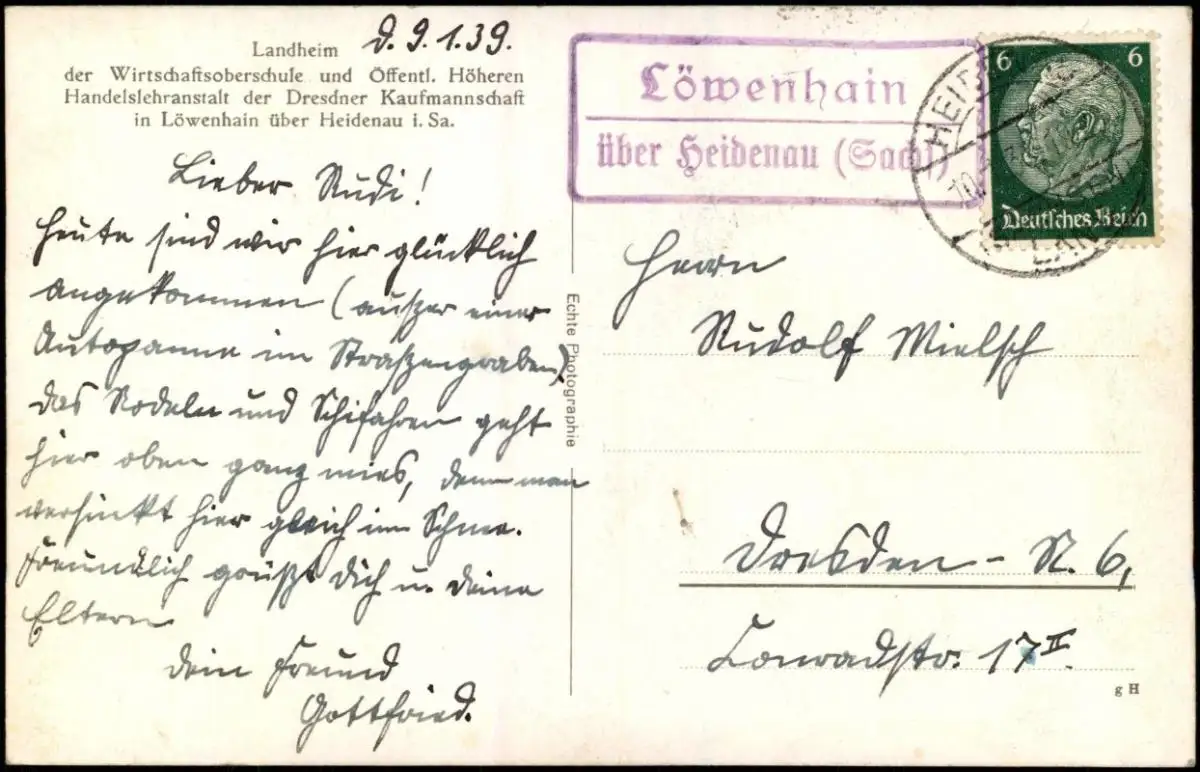 D. 9.1.39.
Landheim
der Wirtschaftsoberschule und Öffentl. Höheren
Handelslehranstalt der Dresdner Kaufmannschaft
in Löwenhain über Heidenau i. Sa.
Lieber Rudi!
Heute sind wir hier glücklich
angekommen (außer einer
Autopanne im Straßengraben)
das Rodeln und Schifahren geht
hier oben ganz mies, denn man
versinkt hier gleich im Schnee.
Freundlich grüßt Dich u. Deine
Eltern
Dein Freund
Gottfried.
Echte Photographie
Löwenhain
über Heidenau (Sachs)
6 6
Deutsches Reich
Herrn
Rudolf Mielsch
Dresden - N. 6,
Conradstr. 17 II.
g H